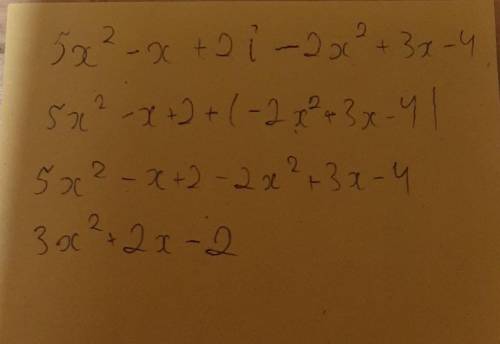 5x² - x + 2 і - 2x² + 3x - 4
5x² - x + 2 + (-2x² + 3x - 4)
5x² - x + 2 - 2x² + 3x - 4
3x² + 2x - 2